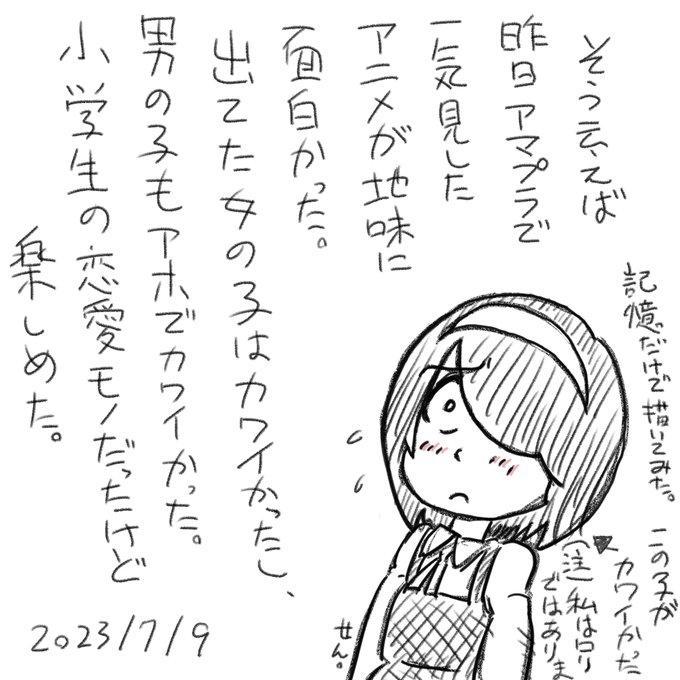 そう云えば
昨日アマプラで
一気見した
アニメが地味に
面白かった。
出てた女の子はカワイかったし、
男の子もアホでカワイかった。
小学生の恋愛モノだったけど
楽しめた。
記憶だけで描いてみた。
この子が
カワイかった
(注)私はロリ
ではありま
せん。
2023/7/9